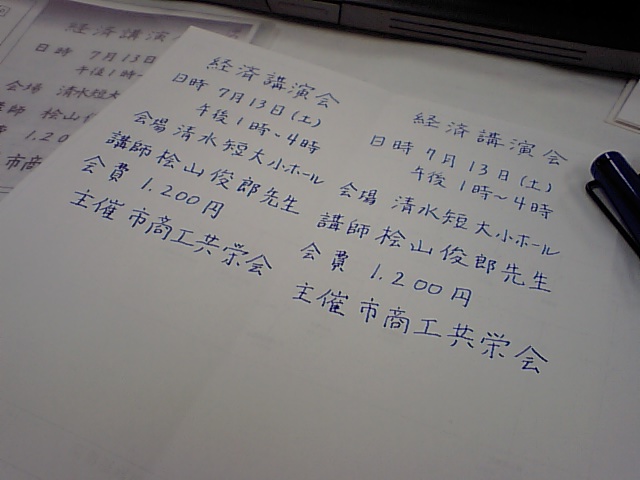 経済講演会
日時 7月13日(土)
午後1時~4時
会場 清水短大小ホール
講師 桧山俊郎先生
会費 1.200円
主催 市商工共栄会
経済講演会
日時 7月13日(土)
午後1時~4時
会場 清水短大小ホール
講師 桧山俊郎先生
会費 1.200円
主催 市商工共栄会
経済講演
日時 7月13日
午後1時~
会場 清水短大
師 桧山
1.20
市商